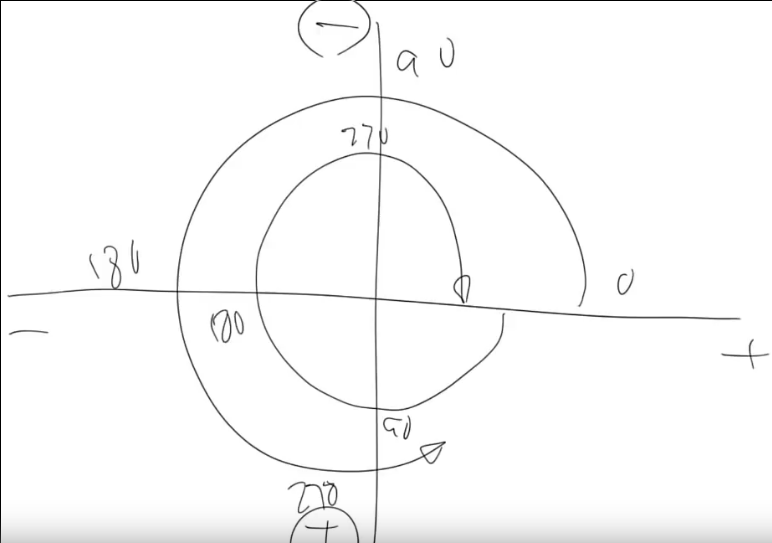 −
90
270
180
0
180
−
+
90
270
+